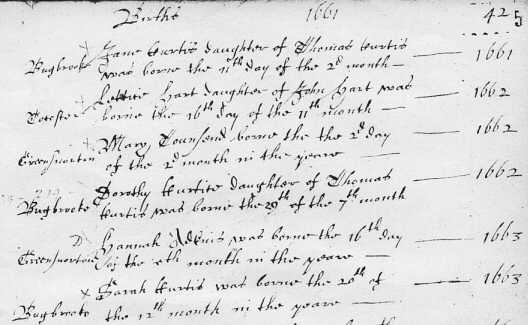 Births 1661 425
Jane Kurtis daughter of Thomas Kurtis
Bugbrooke was borne the 11th day of the 2d month — 1661
Lettice Hart daughter of John Hart was
Tocester borne the 16th day of the 11th month — 1662
Mary Townsend borne the the 2d day
Greensnorton of the 2d month in the yeare — 1662
Dorothy Kurtis daughter of Thomas
Bugbrooke Kurtis was borne the 29th of the 7th month 1662
Hannah Adkins was borne the 16th day
Greensnorton of the month in the yeare — 1663
x Sarah Kurtis was borne the 20th of
Bugbrooke the 12th month in the yeare — 1663